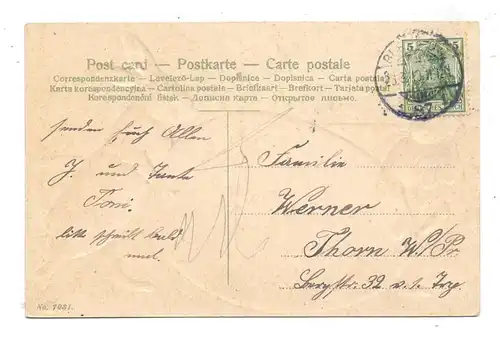 Post card — Postkarte — Carte postale
Correspondenzkarte - Levelező-Lap - Dopisnice - Dopisnica - Carta postale
Karta korespondencyjna - Cartolina postale - Briefkaart - Brefkort - Tarjeta postal
Korespondenční lístek. - Дописна карта. - Открытое письмо.
senden Euch Allen
J. und Tante
Toni.
bitte schreibt bald
mal.
Familie
Werner
Thorn W/Pr.
Bergstr. 32 v. 1. Trp.
No. 1031.
5 5